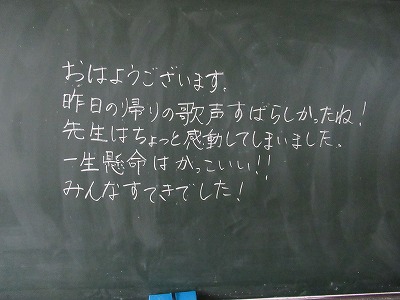 おはようございます。
昨日の帰りの歌声すばらしかったね！
先生はちょっと感動してしまいました。
一生懸命はかっこいい！！
みんなすてきでした！